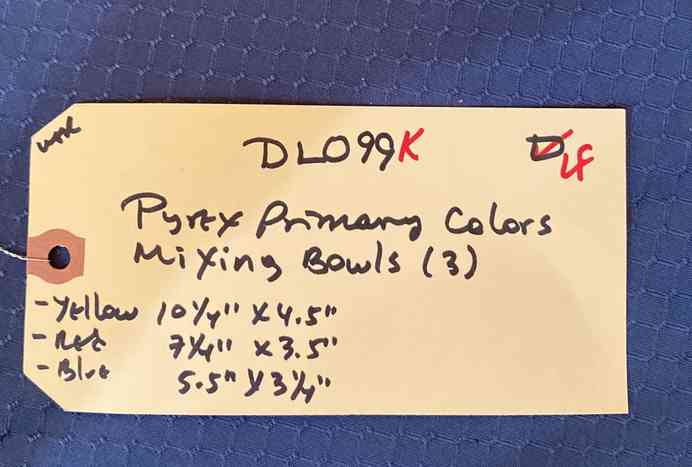 DL099K
LF
Pyrex Primary Colors
Mixing Bowls (3)
- Yellow 10 1/4" x 4.5"
- Red 7 1/4" x 3.5"
- Blue 5.5" x 3 1/4"